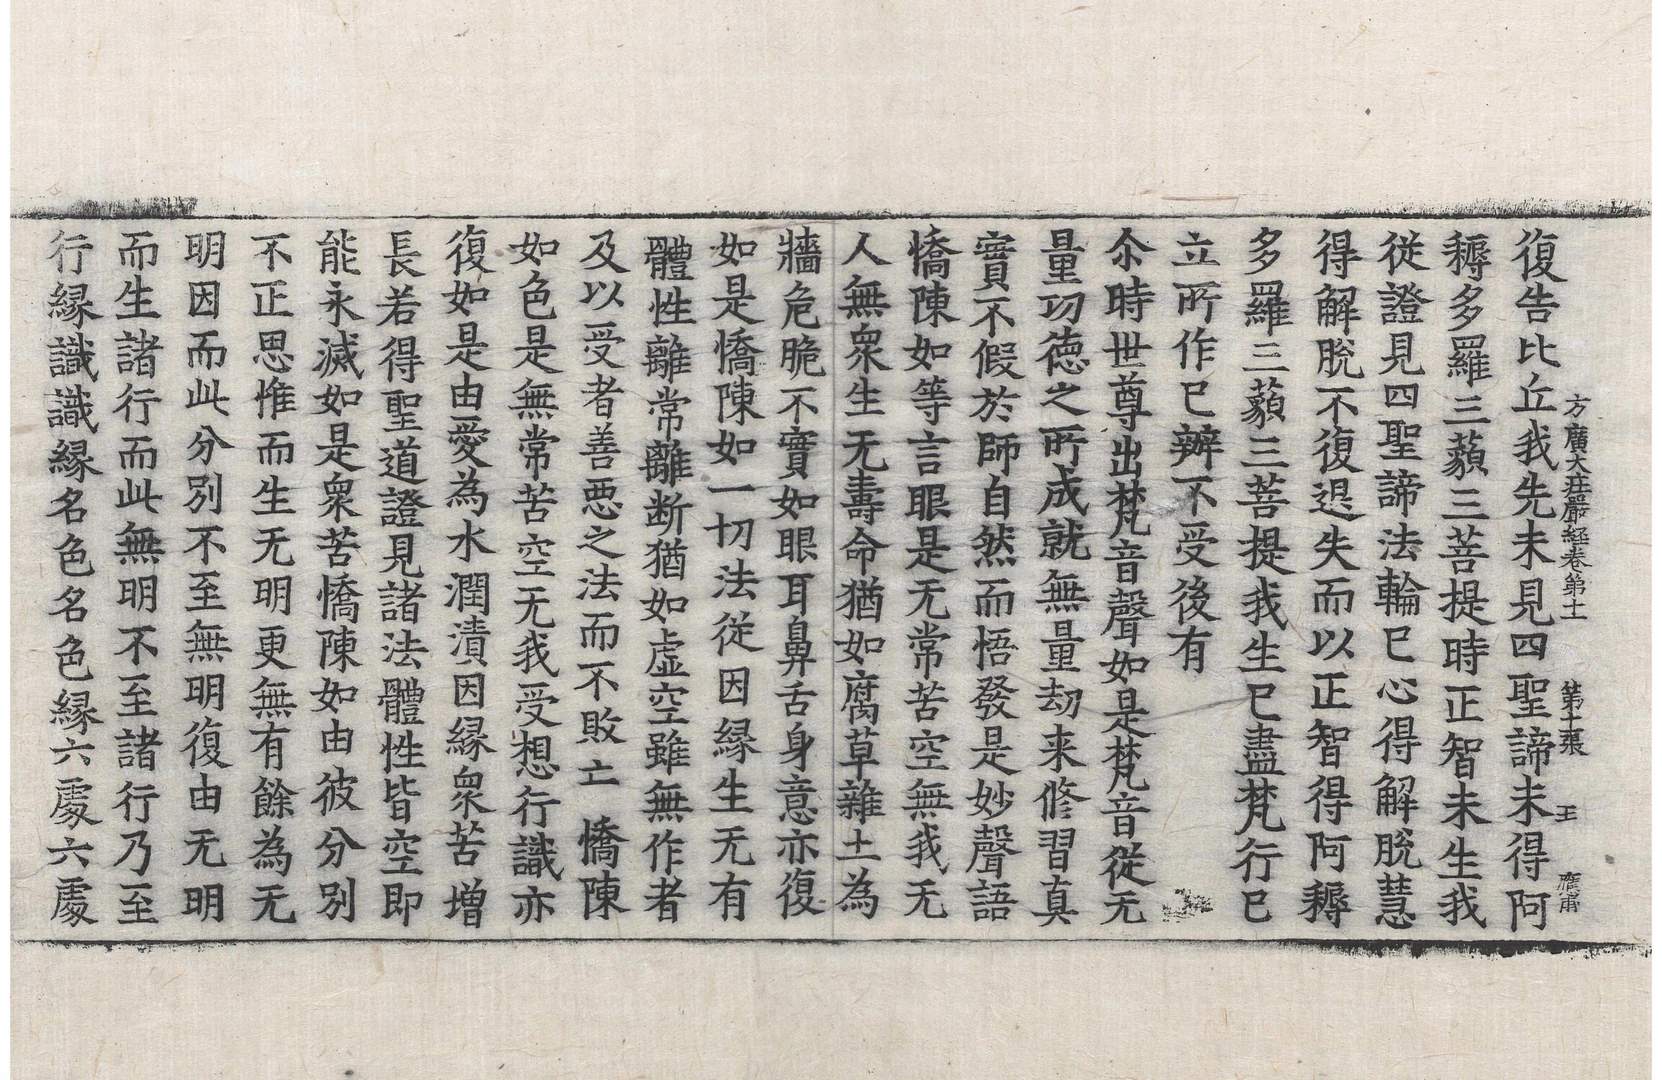 方廣大莊嚴経卷第十一 第十張 王 
復告比丘我先未見四聖諦未得阿
耨多羅三藐三菩提時正智未生我
從證見四聖諦法輪已心得解脫慧
得解脫不復退失而以正智得阿耨
多羅三藐三菩提我生已盡梵行已
立所作已辦不受後有
尒時世尊出梵音聲如是梵音從无
量功徳之所成就無量劫来修習真
實不假於師自然而悟發是妙聲語
憍陳如等言眼是无常苦空無我无
人無衆生无壽命猶如腐草雜土為
牆危脆不實如眼耳鼻舌身意亦復
如是憍陳如一切法從因縁生无有
體性離常離断猶如虚空雖無作者
及以受者善惡之法而不敗亡憍陳
如色是無常苦空无我受想行識亦
復如是由愛為水潤漬因縁衆苦增
長若得聖道證見諸法體性皆空即
能永滅如是衆苦憍陳如由彼分別
不正思惟而生无明更無有餘為无
明因而此分別不至無明復由无明
而生諸行而此無明不至諸行乃至
行縁識識縁名色名色縁六處六處